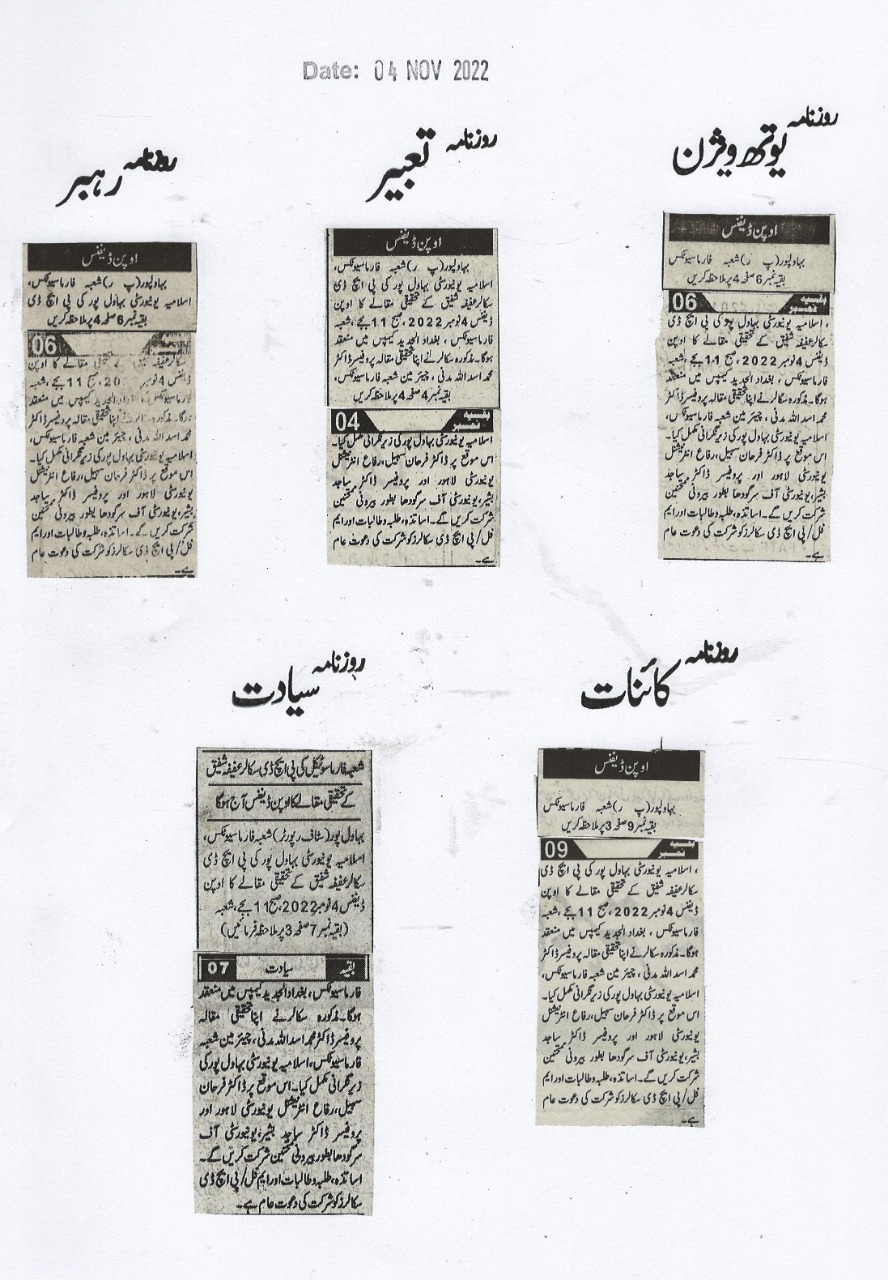 Date: 04 NOV 2022
روزنامہ یوتھ ویژن
اوپن ڈیفنس
بہاولپور(پ ر)شعبہ فارماسیوٹکس
بقیہ نمبر6صفحہ4پرملاحظہ کریں
بقیہ نمبر 06
، اسلامیہ یونیورسٹی بہاول پور کی پی ایچ ڈی
سکالرعفیفہ شفیق کے تحقیقی مقالے کا اوپن
ڈیفنس 4نومبر 2022،صبح 11بجے،شعبہ
فارماسیوٹکس ، بغداد الجدید کیمپس میں منعقد
ہوگا۔مذکورہ سکالرنے اپنا تحقیقی مقالہ پروفیسرڈاکٹر
محمد اسد اللہ مدنی ، چیئر مین شعبہ فارماسیوٹکس،
اسلامیہ یونیورسٹی بہاول پور کی زیر نگرانی مکمل کیا۔
اس موقع پر ڈاکٹر فرحان سہیل،رفاع انٹرنیشنل
یونیورسٹی لاہور اور پروفیسر ڈاکٹر ساجد
بشیر،یونیورسٹی آف سرگودھا بطور بیرونی ممتحنین
شرکت کریں گے۔اساتذہ،طلبہ وطالبات اور ایم
فل/پی ایچ ڈی سکالرز کو شرکت کی دعوت عام
ہے۔
روزنامہ تعبیر
اوپن ڈیفنس
بہاولپور(پ ر)شعبہ فارماسیوٹکس،
اسلامیہ یونیورسٹی بہاول پور کی پی ایچ ڈی
سکالر عفیفہ شفیق کے تحقیقی مقالے کا اوپن
ڈیفنس 4نومبر 2022،صبح 11بجے،شعبہ
فارماسیوٹکس ، بغداد الجدید کیمپس میں منعقد
ہوگا۔مذکورہ سکالرنے اپنا تحقیقی مقالہ پروفیسرڈاکٹر
محمد اسد اللہ مدنی ، چیئر مین شعبہ فارماسیوٹکس،
بقیہ نمبر4صفحہ4پرملاحظہ کریں
بقیہ نمبر 04
اسلامیہ یونیورسٹی بہاول پور کی زیر نگرانی مکمل کیا۔
اس موقع پر ڈاکٹر فرحان سہیل،رفاع انٹرنیشنل
یونیورسٹی لاہور اور پروفیسر ڈاکٹر ساجد
بشیر،یونیورسٹی آف سرگودھا بطور بیرونی ممتحنین
شرکت کریں گے۔اساتذہ،طلبہ وطالبات اور ایم
فل/پی ایچ ڈی سکالرز کو شرکت کی دعوت عام
ہے۔
روزنامہ رہبر
اوپن ڈیفنس
بہاولپور(پ ر)شعبہ فارماسیوٹکس،
اسلامیہ یونیورسٹی بہاول پور کی پی ایچ ڈی
بقیہ نمبر6صفحہ4پرملاحظہ کریں
06
سکالرعفیفہ تحقیقی مقالے کا اوپن
ڈیفنس 4نومبر صبح 11 بجے،شعبہ
بغداد الجدید کیمپس میں منعقد
ہوگا۔ مذکورہ سکالر اپنا تحقیقی مقالہ پروفیسرڈاکٹر
محمد اسد اللہ مدنی ، چیئر مین شعبہ فارماسیوٹکس،
اسلامیہ یونیورسٹی بہاول پور کی زیر نگرانی مکمل کیا۔
اس موقع پر ڈاکٹر فرحان سہیل،رفاع انٹرنیشنل
یونیورسٹی لاہور اور پروفیسر ڈاکٹر ساجد
بشیر،یونیورسٹی آف سرگودھا بطور بیرونی ممتحنین
شرکت کریں گے۔اساتذہ،طلبہ وطالبات اور ایم
فل/پی ایچ ڈی سکالرز کو شرکت کی دعوت عام
ہے۔
روزنامہ کائنات
اوپن ڈیفنس
بہاولپور(پ ر)شعبہ فارماسیوٹکس
بقیہ نمبر9صفحہ3پرملاحظہ کریں
بقیہ نمبر 09
، اسلامیہ یونیورسٹی بہاول پور کی پی ایچ ڈی
سکالرعفیفہ شفیق کے تحقیقی مقالے کا اوپن
ڈیفنس 4نومبر 2022،صبح 11بجے،شعبہ
فارماسیوٹکس ، بغداد الجدید کیمپس میں منعقد
ہوگا۔مذکورہ سکالرنے اپنا تحقیقی مقالہ پروفیسرڈاکٹر
محمد اسد اللہ مدنی ، چیئر مین شعبہ فارماسیوٹکس،
اسلامیہ یونیورسٹی بہاول پور کی زیر نگرانی مکمل کیا۔
اس موقع پر ڈاکٹر فرحان سہیل،رفاع انٹرنیشنل
یونیورسٹی لاہور اور پروفیسر ڈاکٹر ساجد
بشیر،یونیورسٹی آف سرگودھا بطور بیرونی ممتحنین
شرکت کریں گے۔اساتذہ،طلبہ وطالبات اور ایم
فل/پی ایچ ڈی سکالرز کو شرکت کی دعوت عام
ہے۔
روزنامہ سیادت
شعبہ فارماسوٹیکل کی پی ایچ ڈی سکالر عفیفہ شفیق
کے تحقیقی مقالے کا اوپن ڈیفنس آج ہوگا
بہاول پور(سٹاف رپورٹر)شعبہ فارماسیوٹکس،
اسلامیہ یونیورسٹی بہاول پور کی پی ایچ ڈی
سکالرعفیفہ شفیق کے تحقیقی مقالے کا اوپن
ڈیفنس4نومبر2022،صبح11بجے،شعبہ
(بقیہ نمبر7صفحہ3پرملاحظہ فرمائیں)
بقیہ سیادت 07
فارماسیوٹکس، بغداد الجدید کیمپس میں منعقد
ہوگا۔مذکورہ سکالرنے اپنا تحقیقی مقالہ
پروفیسر ڈاکٹر محمد اسد اللہ مدنی، چیئر مین شعبہ
فارماسیوٹکس، اسلامیہ یونیورسٹی بہاول پور کی
زیر نگرانی مکمل کیا۔اس موقع پر ڈاکٹر فرحان
سہیل،رفاع انٹرنیشنل یونیورسٹی لاہور اور
پروفیسر ڈاکٹر ساجد بشیر،یونیورسٹی آف
سرگودھا بطور بیرونی ممتحنین شرکت کریں گے۔
اساتذہ،طلبہ وطالبات اور ایم فل/پی ایچ ڈی
سکالرز کو شرکت کی دعوت عام ہے۔